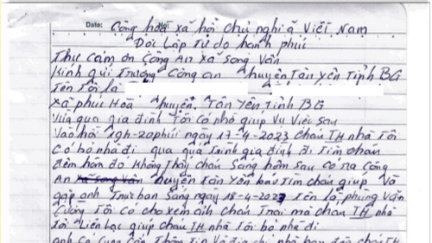 Date: No
Cộng hòa xã hội chủ nghĩa Việt Nam
Độc Lập Tự do hạnh phúc
Thư cảm ơn Công An xã Song Vân
Kính gửi Trưởng Công an huyện Tân yên Tỉnh BG
Tên Tôi là
xã phúc Hoà huyện Tân yên Tỉnh BG
vừa qua gia đình Tôi có nhờ giúp vụ việc sau
vào hồi 19h-20phút ngày 17-4-2023 cháu TH nhà Tôi
có bỏ nhà đi gia đình đi Tìm cháu
đêm hôm đó không Thấy cháu Sáng hôm sau có ra Công
An huyện Tân yên báo Tìm cháu giúp và
gặp anh Trực ban Sáng ngày 18-4-2023 Tên là phùng văn
có cho xem ảnh cháu mà cháu TH nhà
Tôi Liên lạc giúp cháu TH nhà Tôi bỏ nhà đi